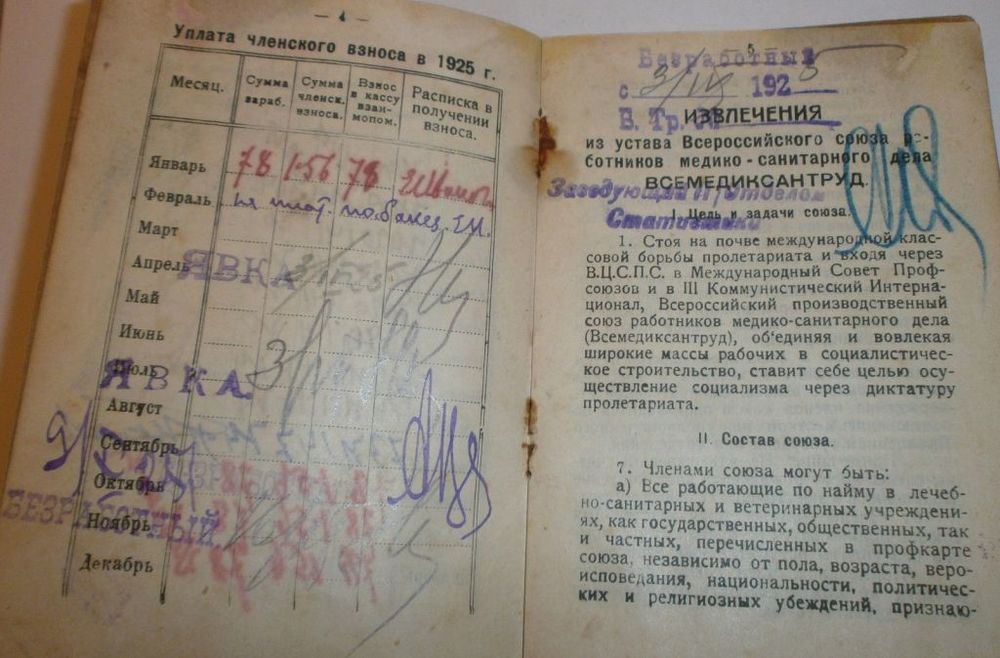 — 4 —
Уплата членского взноса в 1925 г.
Месяц. Сумма зараб. Сумма членск. взноса. Взнос в кассу взаимопом. Расписка в получении взноса.
Январь 78 1-56 78
Февраль
Март
Апрель ЯВКА
Май
Июнь
Июль
ЯВКА.
Август
Сентябрь
Октябрь
БЕЗРАБОТНЫЙ
Ноябрь
Декабрь
5
Безработный
с 3/IX 1925
В. Тр.
ИЗВЛЕЧЕНИЯ
из устава Всероссийского союза ра-
ботников медико-санитарного дела
ВСЕМЕДИКСАНТРУД.
Заведующий П/Отделом
Статистики
I. Цель и задачи союза.
1. Стоя на почве международной клас-
совой борьбы пролетариата и входя через
В.Ц.С.П.С. в Международный Совет Проф-
союзов и в III Коммунистический Интерна-
ционал, Всероссийский производственный
союз работников медико-санитарного дела
(Всемедиксантруд), об'единяя и вовлекая
широкие массы рабочих в социалистичес-
кое строительство, ставит себе целью осу-
ществление социализма через диктатуру
пролетариата.
II. Состав союза.
7. Членами союза могут быть:
а) Все работающие по найму в лечеб-
но-санитарных и ветеринарных учреждени-
ях, как государственных, общественных, так
и частных, перечисленных в профкарте
союза, независимо от пола, возраста, веро-
исповедания, национальности, политичес-
ких и религиозных убеждений, признаю-